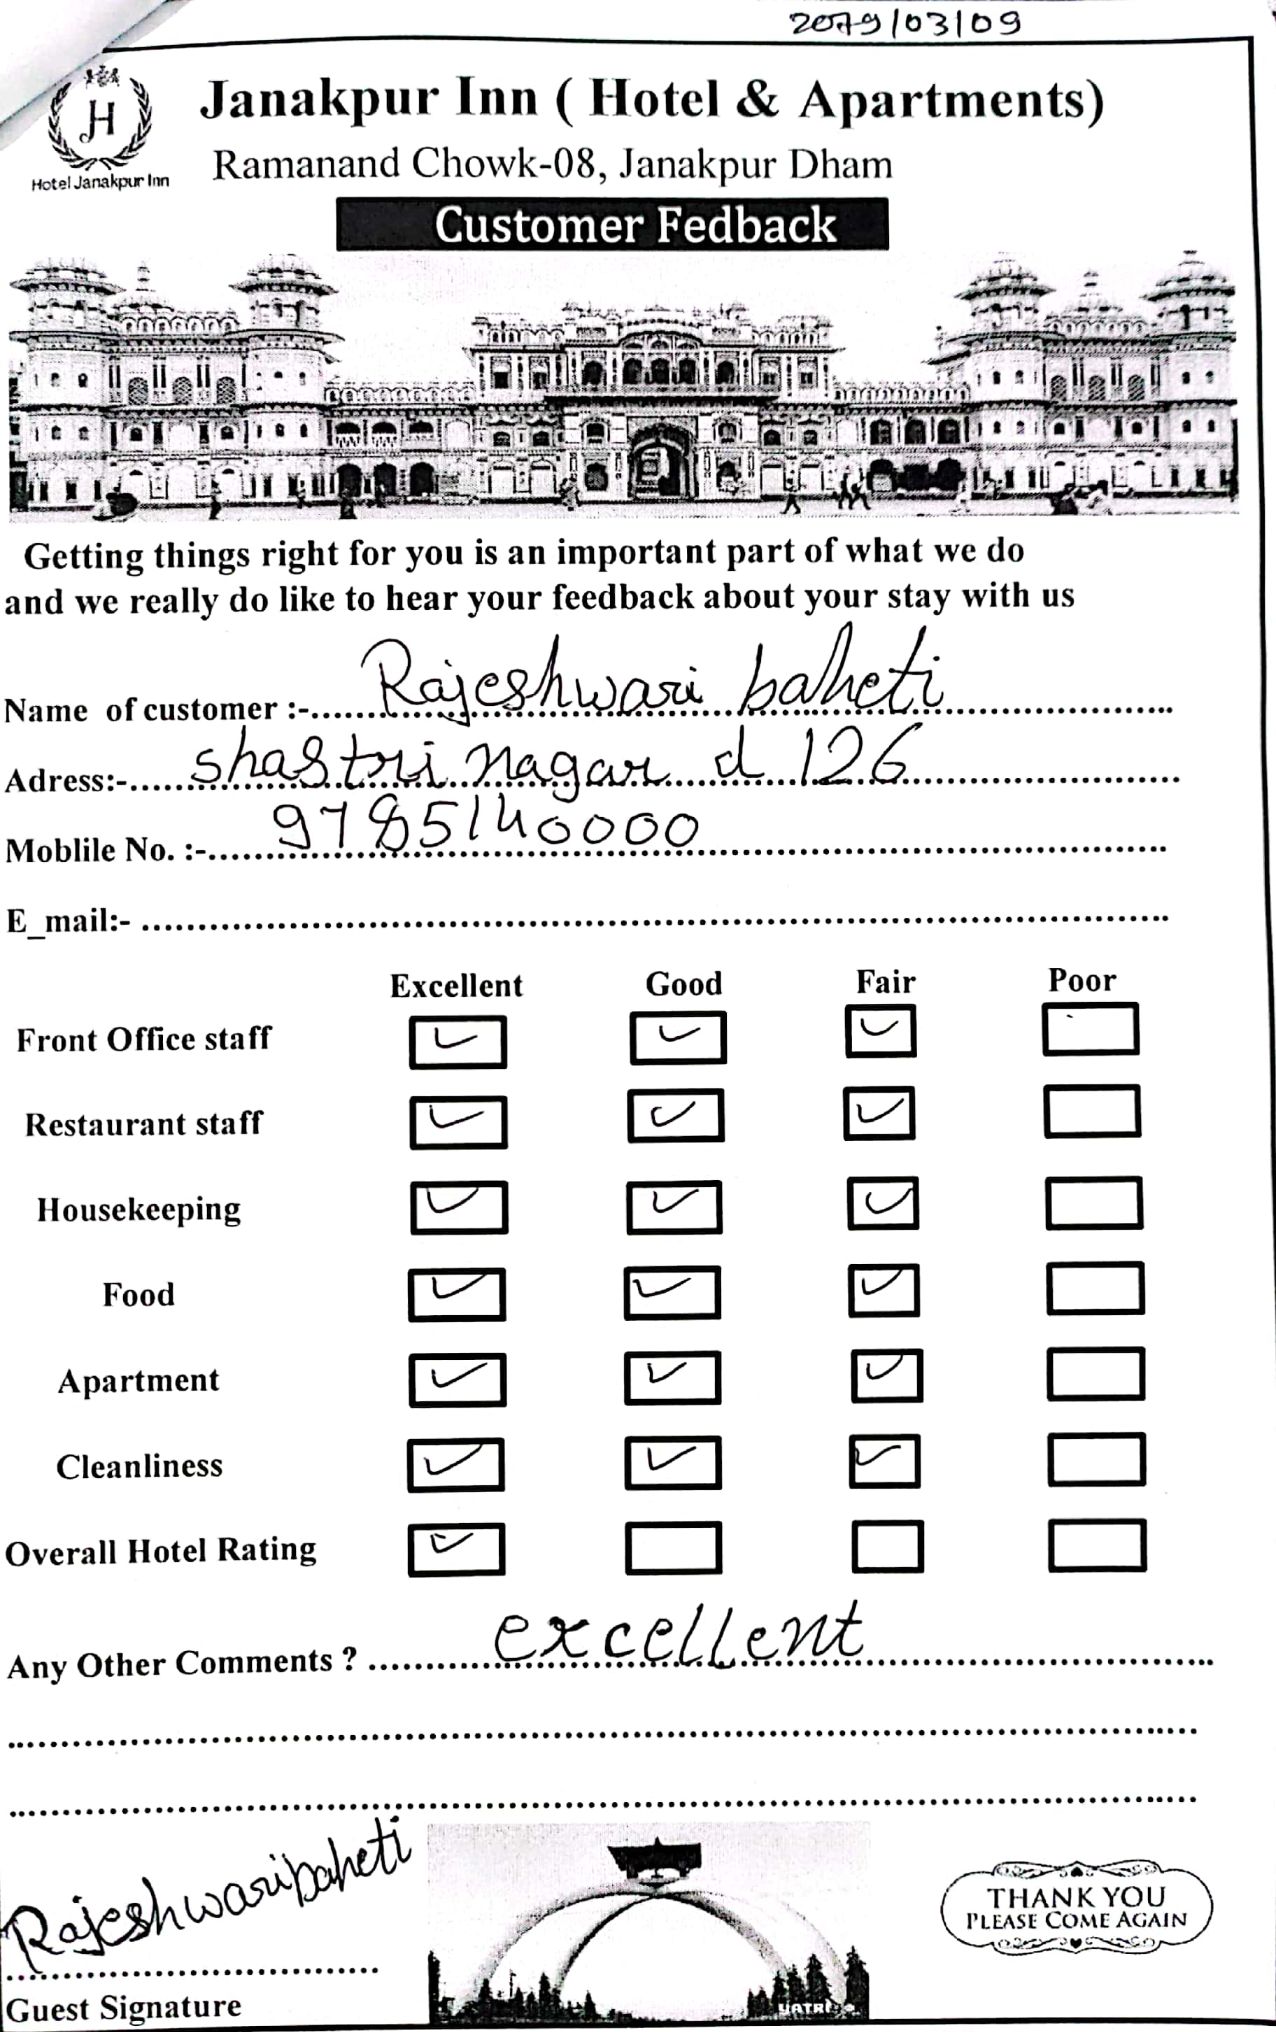 2079/03/09
Janakpur Inn ( Hotel & Apartments)
H
Hotel Janakpur Inn
Ramanand Chowk-08, Janakpur Dham
Customer Fedback
Getting things right for you is an important part of what we do
and we really do like to hear your feedback about your stay with us
Name of customer :-...... Rajeshwari baheti
Adress:-...... shastri nagar d 126
Moblile No. :-...... 9785140000
E_mail:- ......
Excellent Good Fair Poor
Front Office staff ✓ ✓ ✓
Restaurant staff ✓ ✓ ✓
Housekeeping ✓ ✓ ✓
Food ✓ ✓ ✓
Apartment ✓ ✓ ✓
Cleanliness ✓ ✓ ✓
Overall Hotel Rating ✓
Any Other Comments ? ...... excellent
Rajeshwari baheti
Guest Signature
YATRI
THANK YOU
PLEASE COME AGAIN